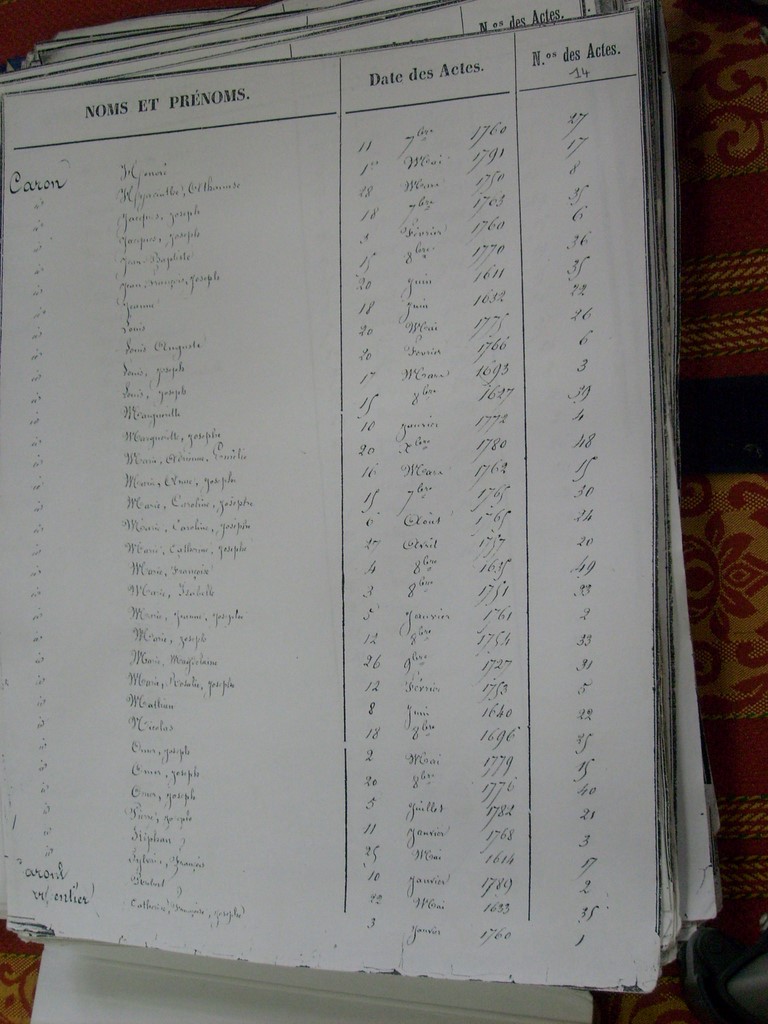 N.os des Actes.
NOMS ET PRÉNOMS. Date des Actes. N.os des Actes.
14
Caron Honoré 11 7bre 1760 27
d° Hyacinthe, Althanase 1er Mai 1791 17
d° Jacques, Joseph 28 Mai 1750 8
d° Jacques, Joseph 18 7bre 1703 35
d° Jean Baptiste 3 Février 1760 6
d° Jean François, Joseph 15 8bre 1770 36
d° Jeanne 20 Juin 1611 35
d° Louis 18 Juin 1632 22
d° Louis Auguste 20 Mai 1775 26
d° Louis, Joseph 20 Février 1766 6
d° Louis, Joseph 17 Mars 1693 3
d° Marguerite 15 8bre 1627 39
d° Marguerite, Josephe 10 Janvier 1772 4
d° Marie, Adrienne, Emélie 20 Xbre 1780 48
d° Marie, Anne, Joseph 16 Mars 1762 15
d° Marie, Caroline, Josephe 15 7bre 1765 30
d° Marie, Caroline, Josephe 6 Août 1765 24
d° Marie, Catherine, Josephe 27 Avril 1757 20
d° Marie, Françoise 4 8bre 1635 49
d° Marie, Isabelle 3 8bre 1751 33
d° Marie, Jeanne, Josephe 5 Janvier 1761 2
d° Marie, Joseph 12 8bre 1754 33
d° Marie, Magdelaine 26 9bre 1727 31
d° Marie, Rosalie, Josephe 12 Février 1753 5
d° Mathieu 8 Juin 1640 22
d° Nicolas 18 8bre 1696 35
d° Omer, Joseph 2 Mai 1779 15
d° Omer, Joseph 20 8bre 1776 40
d° Omer, Joseph 5 Juillet 1782 21
d° Pierre, Joseph 11 Janvier 1768 3
d° 25 Mai 1614 17
d° Sylvain, François 10 Janvier 1789 2
Robert 22 Mai 1633 35
Catherine, Françoise, Josephe 3 Janvier 1760 1